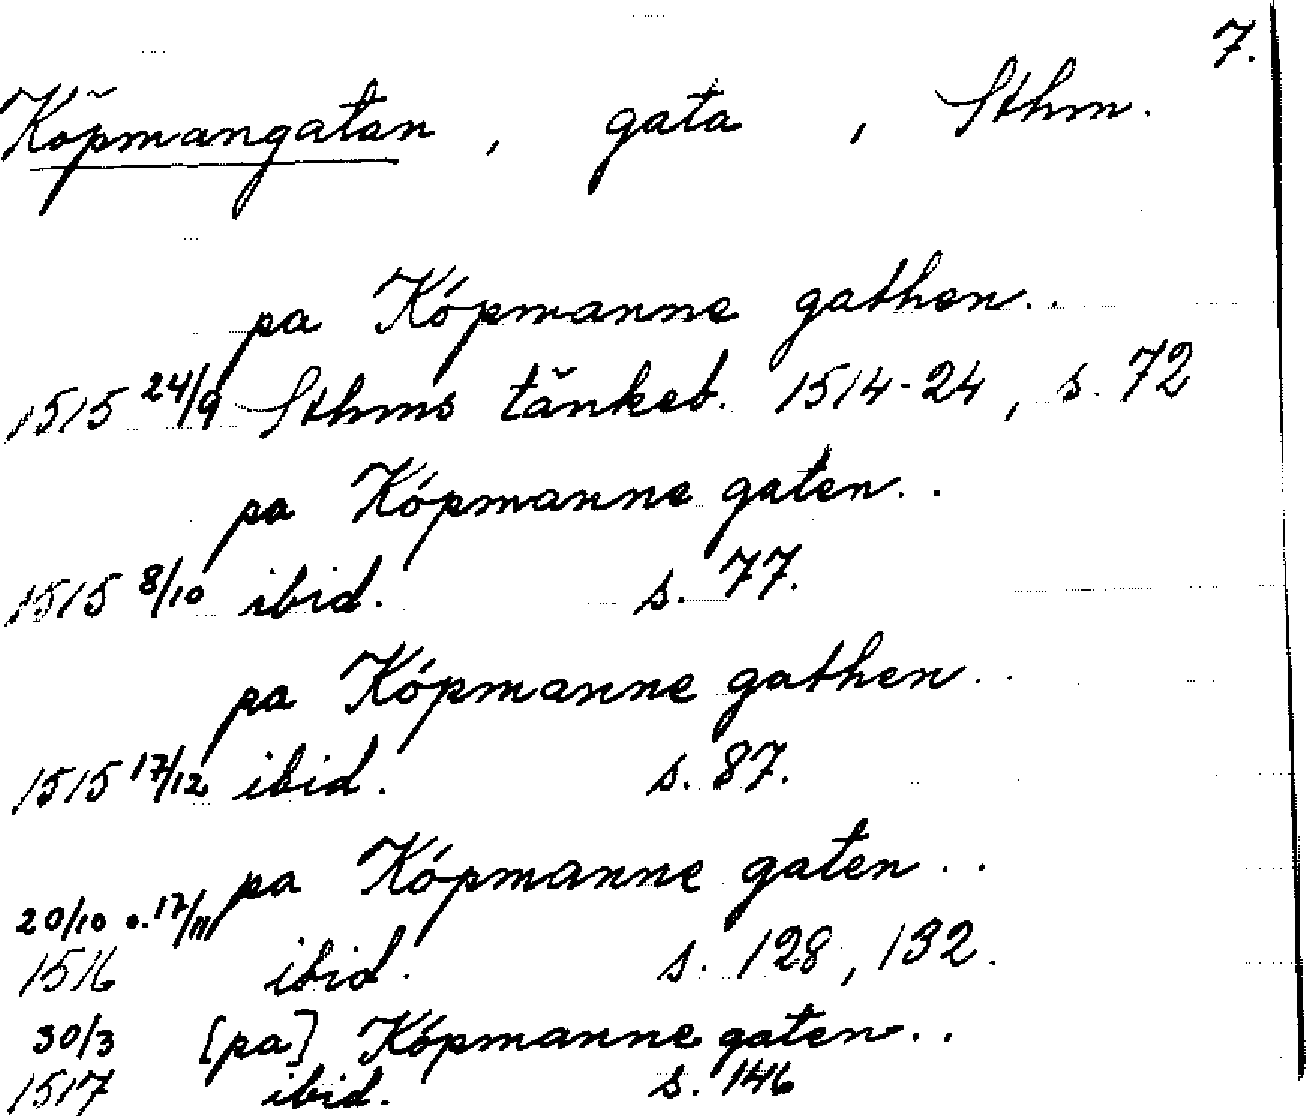 7.
Köpmangatan, gata, Sthm.
pa Kópmanne gathen..
1515 24/9 Sthms tänkeb. 1514-24, s. 72
pa Kópmanne gaten..
1515 8/10 ibid. s. 77.
pa Kópmanne gathen..
1515 17/12 ibid. s. 87.
pa Kópmanne gaten..
20/10 o. 17/11
1516 ibid. s. 128, 132.
30/3 [pa] Kópmanne gaten..
1517 ibid. s. 146